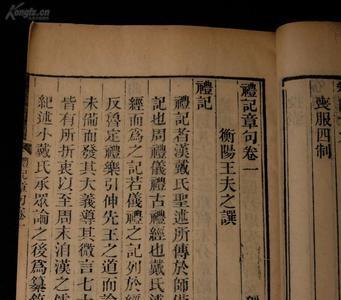 喪服四制
禮記章句卷一
衡陽王夫之譔
禮記
禮記者漢戴氏聖述所傳於師備
記也周禮儀禮古禮經也戴氏述
經而爲之記若儀禮之記列於經
反魯定禮樂引伸先王之道而論
未備而發其大義導其微言七十
皆有所折衷以至周末洎漢之儒
紀述小戴氏承眾論之後爲纂敘
禮記章句卷一
Kongfz.cn